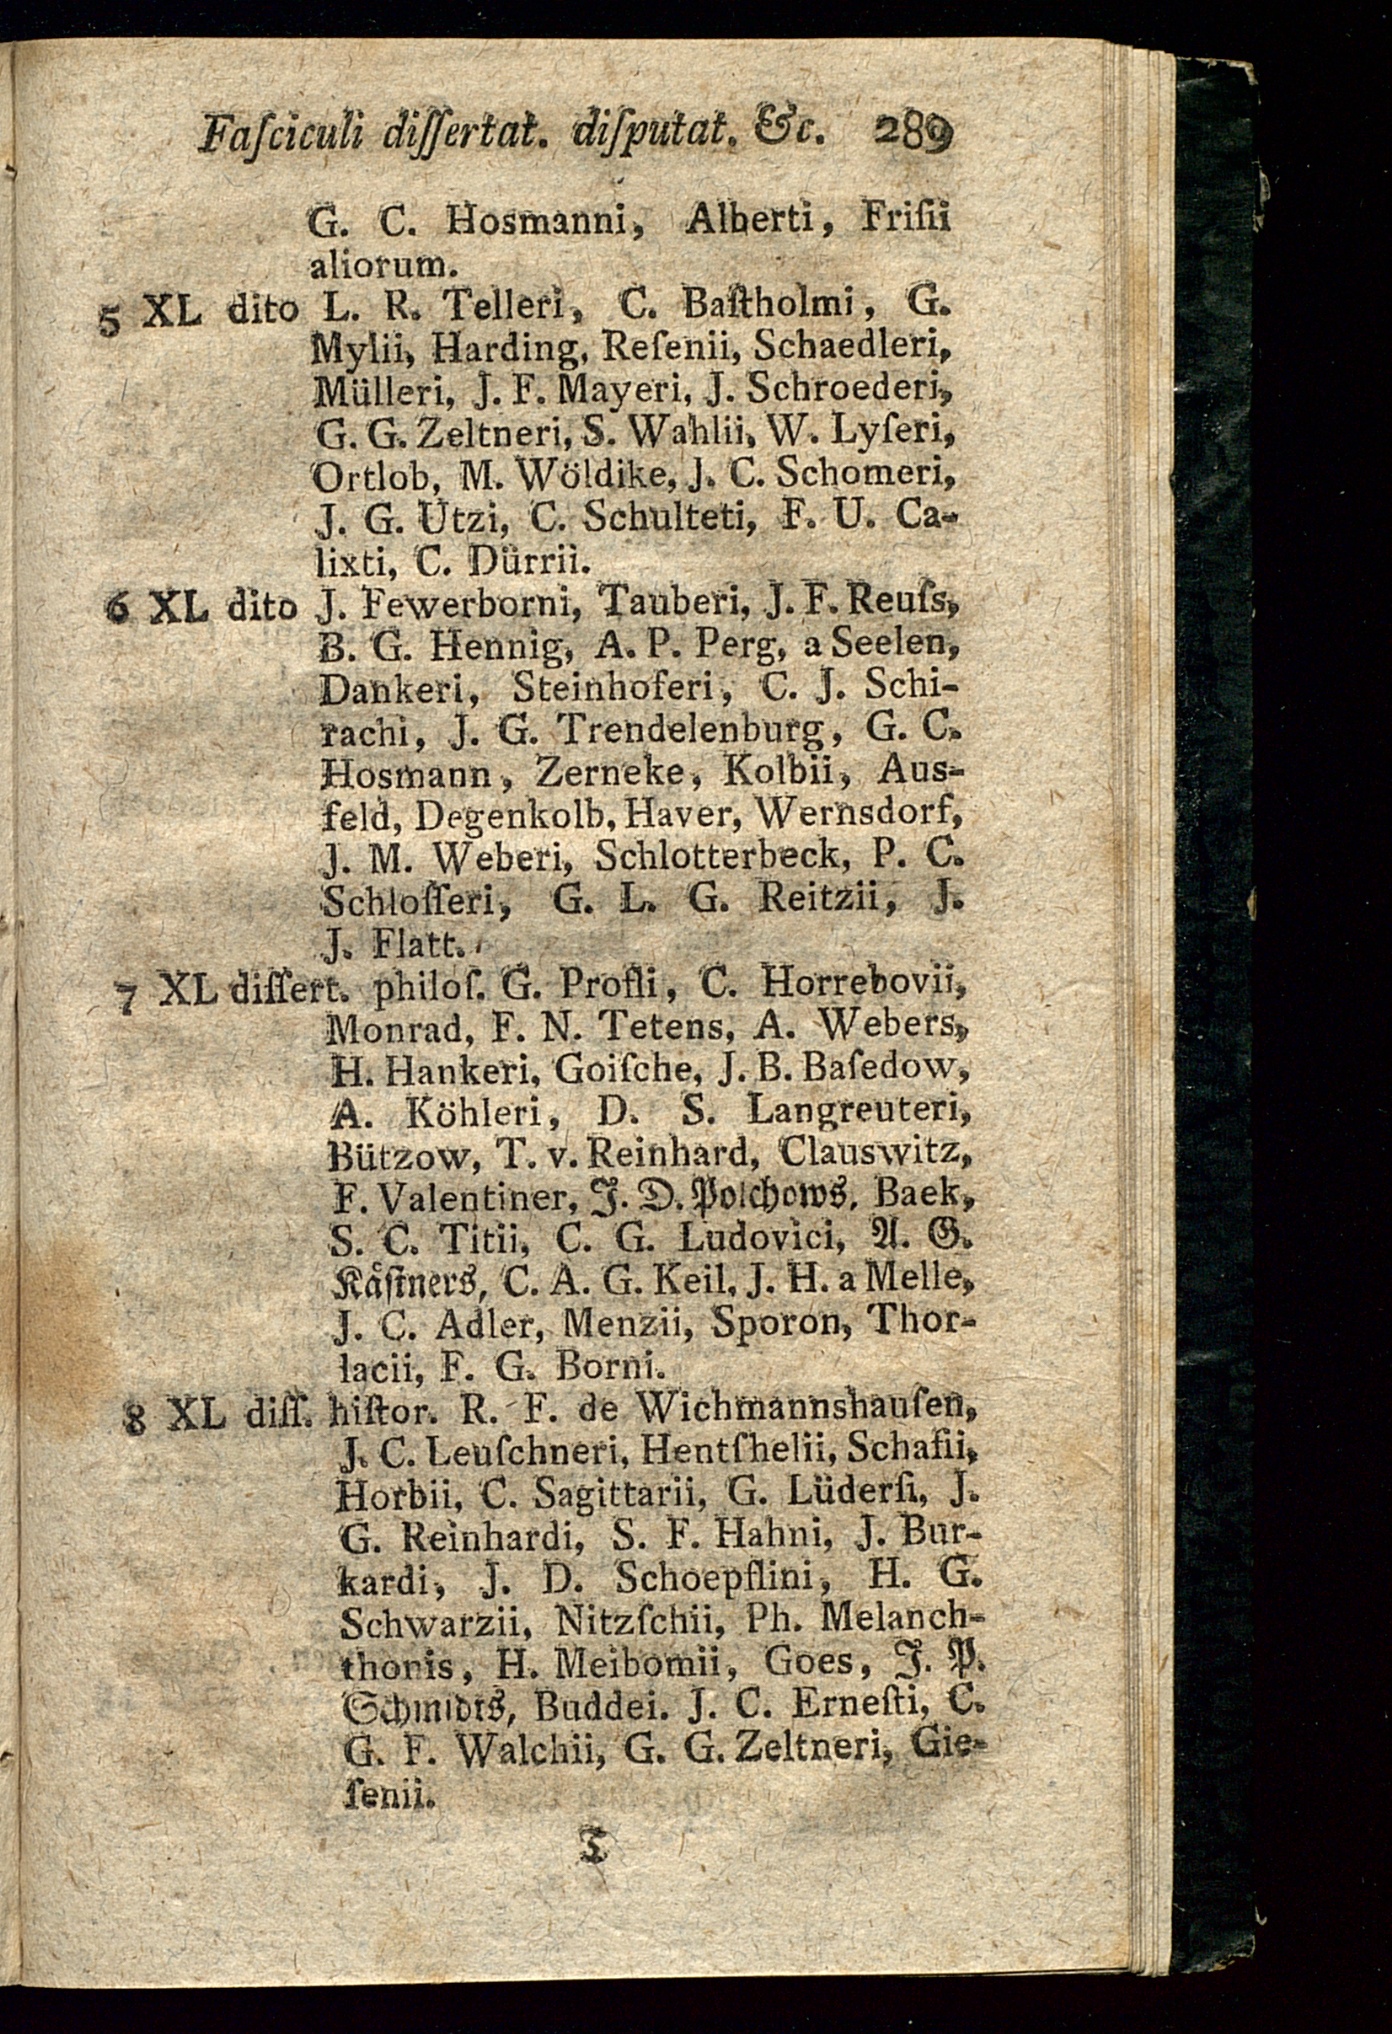 Faſciculi diſſertat. diſputat. &c. 289
G. C. Hosmanni, Alberti, Friſii
aliorum.
5 XL dito L. R. Telleri, C. Baſtholmi, G.
Mylii, Harding, Reſenii, Schaedleri,
Mülleri, J. F. Mayeri, J. Schroederi,
G. G. Zeltneri, S. Wahlii, W. Lyſeri,
Ortlob, M. Wöldike, J. C. Schomeri,
J. G. Utzi, C. Schulteti, F. U. Ca-
lixti, C. Dürrii.
6 XL dito J. Fewerborni, Tauberi, J. F. Reuſs,
B. G. Hennig, A. P. Perg, a Seelen,
Dankeri, Steinhoferi, C. J. Schi-
rachi, J. G. Trendelenburg, G. C.
Hosmann, Zerneke, Kolbii, Aus-
feld, Degenkolb, Haver, Wernsdorf,
J. M. Weberi, Schlotterbeck, P. C.
Schloſſeri, G. L. G. Reitzii, J.
J. Flatt.
7 XL diſſert. philoſ. G. Profli, C. Horrebovii,
Monrad, F. N. Tetens, A. Webers,
H. Hankeri, Goiſche, J. B. Baſedow,
A. Köhleri, D. S. Langreuteri,
Bützow, T. v. Reinhard, Clauswitz,
F. Valentiner, J. D. Polchows, Baek,
S. C. Titii, C. G. Ludovici, A. G.
Kåſtners, C. A. G. Keil, J. H. a Melle,
J. C. Adler, Menzii, Sporon, Thor-
lacii, F. G. Borni.
8 XL diſſ. hiſtor. R. F. de Wichmannshauſen,
J. C. Leuſchneri, Hentſhelii, Schafii,
Horbii, C. Sagittarii, G. Lüderſi, J.
G. Reinhardi, S. F. Hahni, J. Bur-
kardi, J. D. Schoepflini, H. G.
Schwarzii, Nitzſchii, Ph. Melanch-
thonis, H. Meibomii, Goes, J. P.
Schmidts, Buddei. J. C. Erneſti, C.
G. F. Walchii, G. G. Zeltneri, Gie-
ſenii.
T